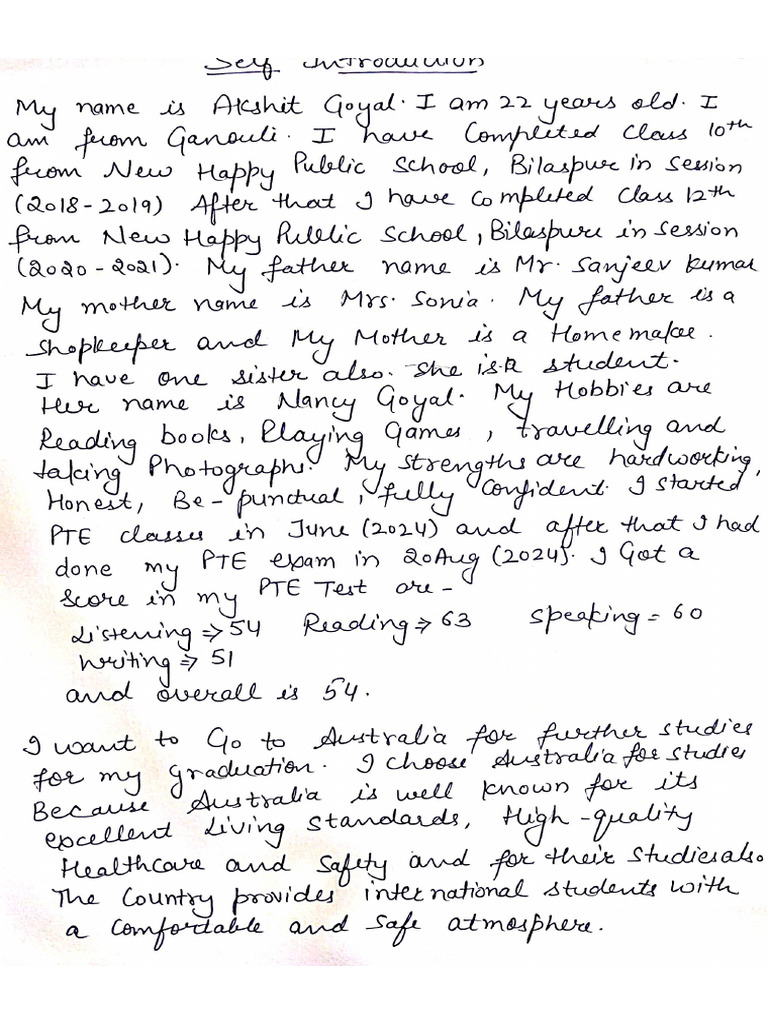 Self Introduction
My name is Akshit Goyal. I am 22 years old. I
am from Ganouli. I have Completed Class 10th
from New Happy Public School, Bilaspur in Session
(2018-2019) After that I have completed Class 12th
from New Happy Public School, Bilaspur in Session
(2020-2021). My father name is Mr. Sanjeev Kumar
My mother name is Mrs. Sonia. My father is a
Shopkeeper and My Mother is a Homemaker.
I have one sister also. She is a student.
Her name is Nancy Goyal. My Hobbies are
Reading books, Playing Games, travelling and
taking Photographs. My strengths are hardworking,
Honest, Be-punctual, fully Confident. I started
PTE classes in June (2024) and after that I had
done my PTE exam in 20 Aug (2024). I Got a
Score in my PTE Test are-
Listening ⇒ 54 Reading ⇒ 63 Speaking = 60
Writing ⇒ 51
and overall is 54.
I want to Go to Australia for further studies
for my graduation. I choose Australia for studies
Because Australia is well known for its
excellent Living Standards, High-quality
Healthcare and Safety and for their Studies also.
The Country provides international students with
a comfortable and safe atmosphere.